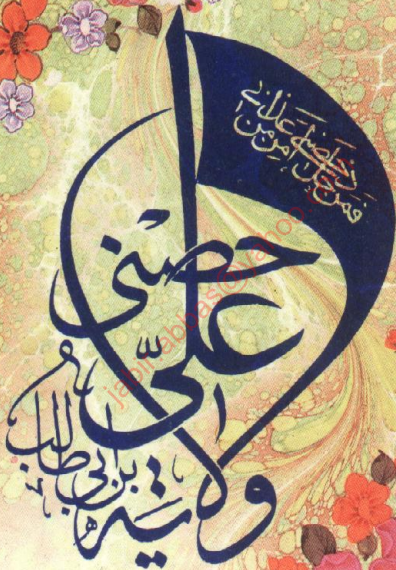 ولاية
علىّ
بن ابى طالب
حصنى
فمن دخل حصنى
امن من عذابى
jabir.abbas@yahoo